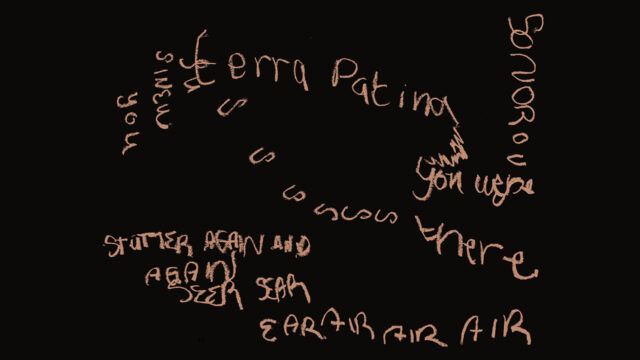 terra patina
SONOROU
S
S
S
S S S
you were
there
STUTTER AGAIN AND
AGAIN
SEER SEAR
EAR AIR AIR AIR